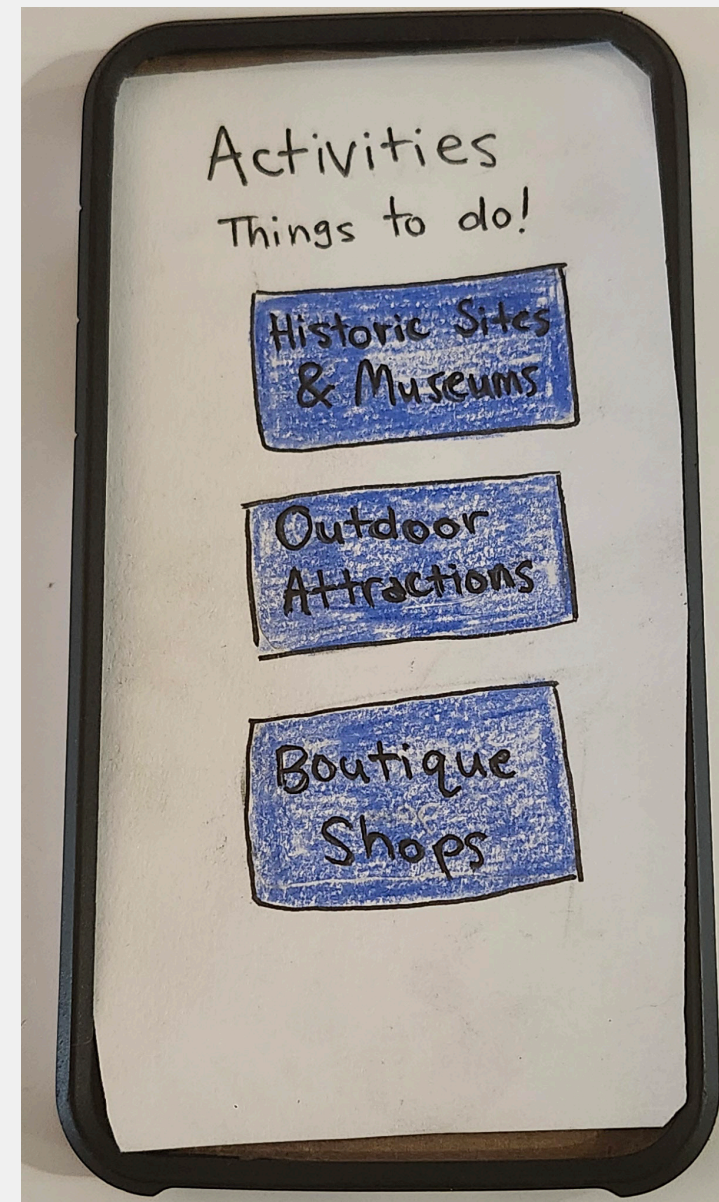 Activities
Things to do!
Historic Sites
& Museums
Outdoor
Attractions
Boutique
Shops